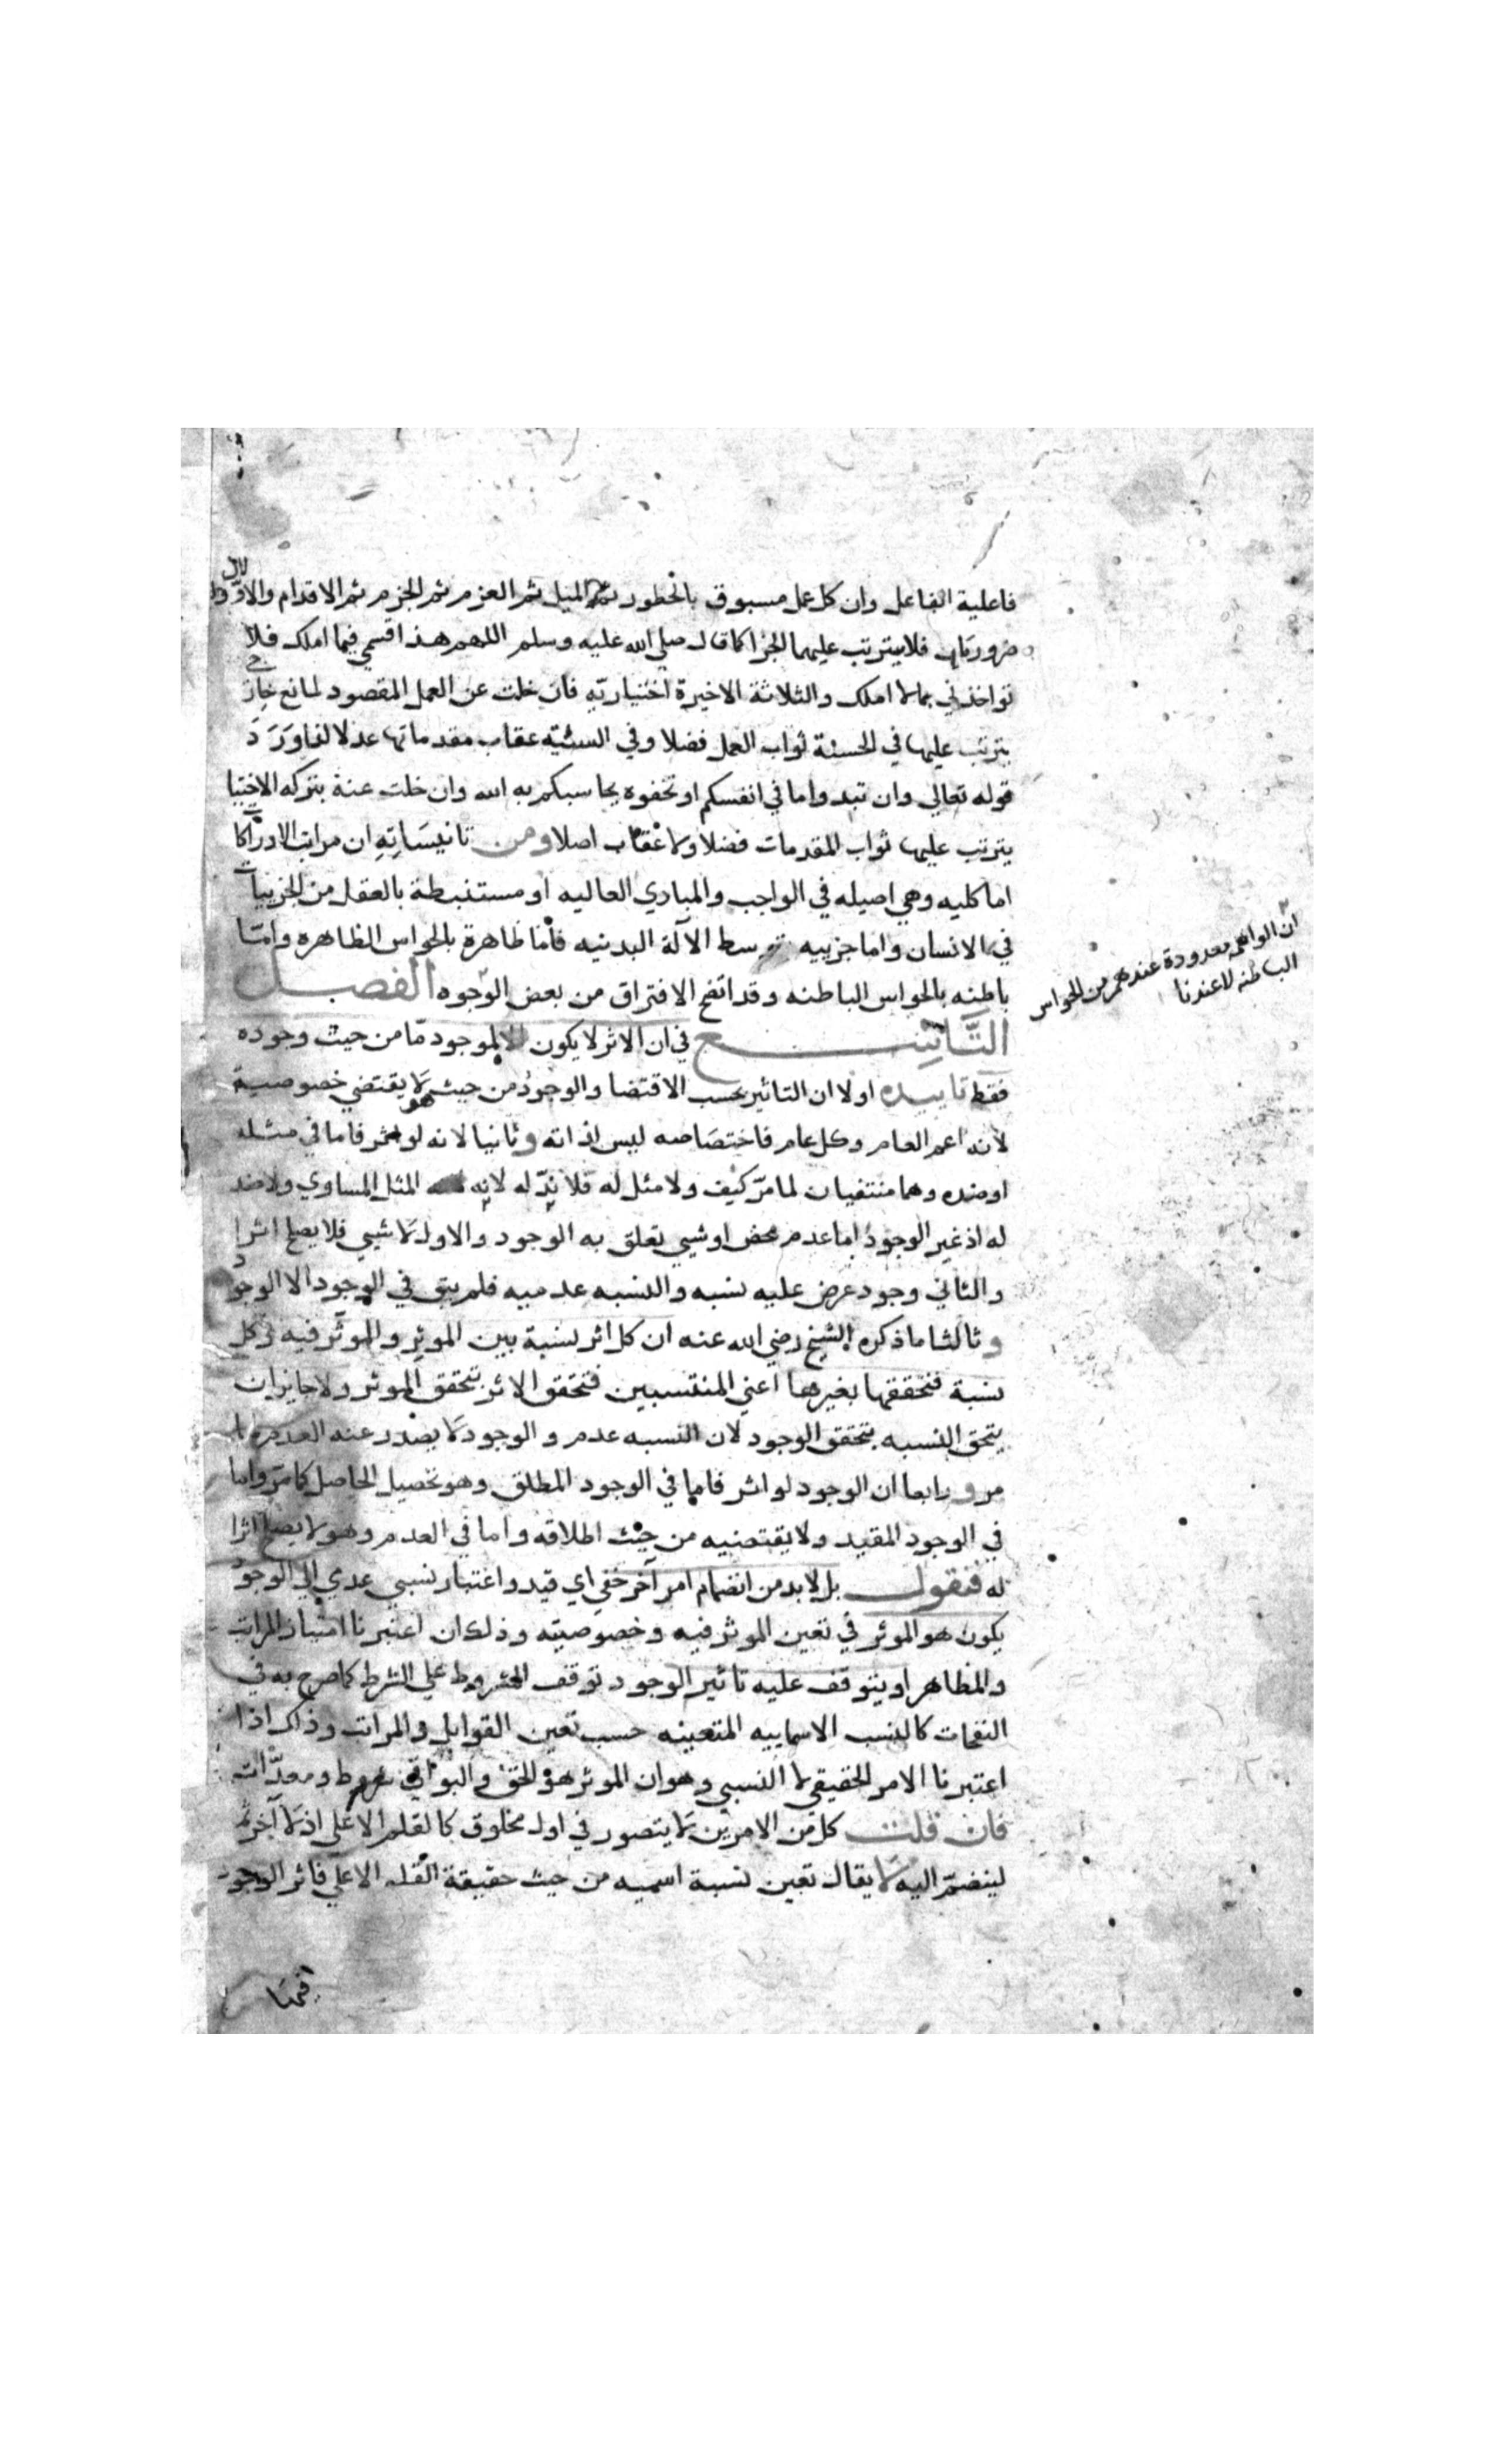 فاعلية الفاعل وان كل عمل مسبوق بالخطور ثم الميل ثم العزم ثم الجزم ثم الاقدام والاولان
ضروريان فلا يترتب عليهما الجزا كما قال صلي الله عليه وسلم اللهم هذا قسمي فيما املك فلا
تواخذني بما لا املك والثلاثة الاخيرة اختياريه فان خلت عن العمل المقصود لمانع خارج
يترتب عليها في الحسنة ثواب العمل فضلا وفي السيئه عقاب مقدماتها عدلا لما ورد
قوله تعالي وان تبدوا ما في انفسكم او تخفوه يحاسبكم به الله وان خلت عنه بتركه الاختيا
يترتب عليها ثواب المقدمات فضلا ولا عقاب اصلا ومن تانيساته ان مراتب الادراكات
اما كليه وهي اصيله في الواجب والمبادي العاليه او مستنبطة بالعقل من الجزييات
في الانسان واما جزييه بتوسط الآلة البدنيه فاما ظاهرة بالحواس الظاهره واما
باطنه بالحواس الباطنه وقد اتضح الافتراق من بعض الوجوه الفصل
التاسع في ان الاثر لا يكون لموجود ما من حيث وجوده
فقط تاييده اولا ان التاثير بحسب الاقتضا والوجود من حيث هو لا يقتضي خصوصية
لانه اعم العام وكل عام فاختصاصه ليس لذاته وثانيا لانه لو اثر فاما في مثله
او ضده وهما منتفيان لما مر كيف ولا مثل له فلا ند له لانه المثل المساوي ولا ضد
له اذ غير الوجود اما عدم محض او شيي تعلق به الوجود والاول لا شيي فلا يصلح اثرا
والثاني وجود عرض عليه نسبه والنسبه عدميه فلم يبق في الوجود الا الوجود
وثالثا ما ذكره الشيخ رضي الله عنه ان كل اثر نسبة بين الموثر والموثر فيه وكل
نسبة فتحققها بغيرها اعني المنتسبين فتحقق الاثر بتحقق الموثر ولا جايز ان
يتحقق النسبه بتحقق الوجود لان النسبه عدم والوجود لا يصدر عنه العدم لما
مر ورابعا ان الوجود لو اثر فاما في الوجود المطلق وهو تحصيل الحاصل كما مر واما
في الوجود المقيد ولا يقتضيه من حيث اطلاقه واما في العدم وهو لا يصلح اثرا
له فنقول بل لا بد من انضمام امر آخر خفي اي قيد واعتبار نسبي عدمي الي الوجود
يكون هو الموثر في تعين الموثر فيه وخصوصيته وذلك ان اعتبرنا امتياز المراتب
والمظاهر او يتوقف عليه تاثير الوجود توقف المشروط علي الشرط كما صرح به في
النفحات كالنسب الاسماييه المتعينه حسب تعين القوابل والمراتب وذلك اذا
اعتبرنا الامر الحقيقي لا النسبي وهو ان الموثر هو الحق والبواقي شروط ومعدات
فان قلت كل من الامرين لا يتصور في اول مخلوق كالقلم الاعلي اذ لا آخر ثم
لينضم اليه لا يقال تعين نسبة اسميه من حيث حقيقة القلم الاعلي فاثر الوجود
ان الواهمه معدودة عندهم من الحواس
الباطنه لا عندنا